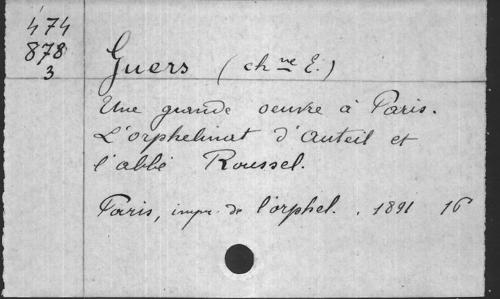 474
878
3
Guers (chne E.)
Une grande oeuvre à Paris.
L'orphelinat d'Auteil et
l'abbé Roussel.
Paris, impr. de l'orphel. . 1891 16